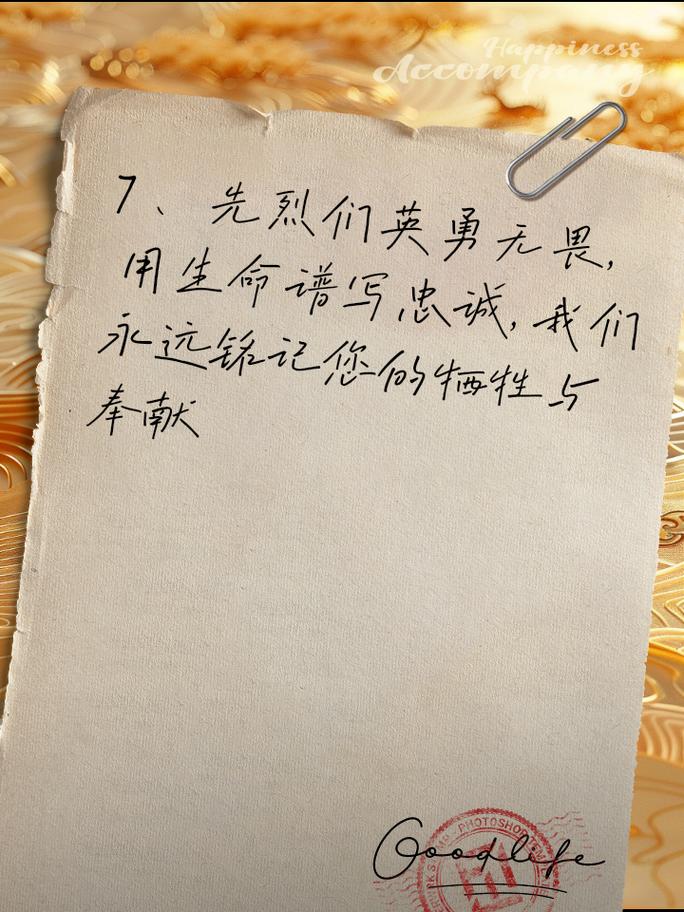 Happiness
Accompany
7、先烈们英勇无畏,
用生命谱写忠诚,我们
永远铭记您的牺牲与
奉献
PHOTOSHOP
Goodlife